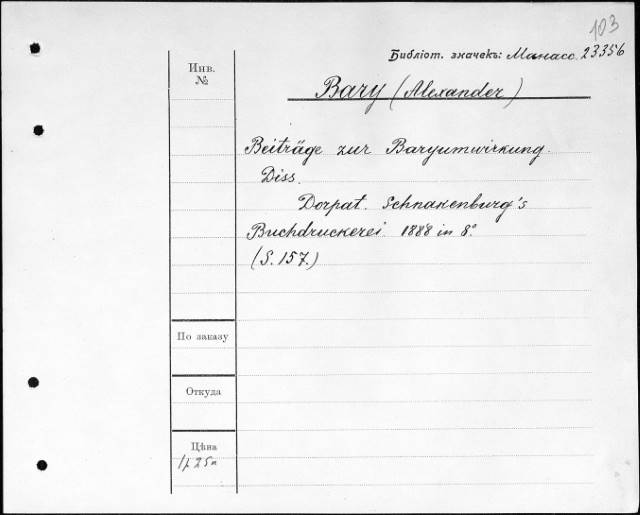 103
Библіот. значекъ: Манасс. 23356
Инв.
№
Bary (Alexander)
Beiträge zur Baryumwirkung.
Diss.
Dorpat. Schnakenburg's
Buchdruckerei. 1888 in 8°
(S. 157.)
По заказу
Откуда
Цѣна
1р 25к